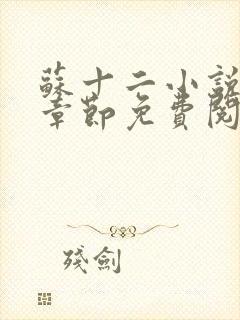 蘇十二小說
章節免費閱
殘劍